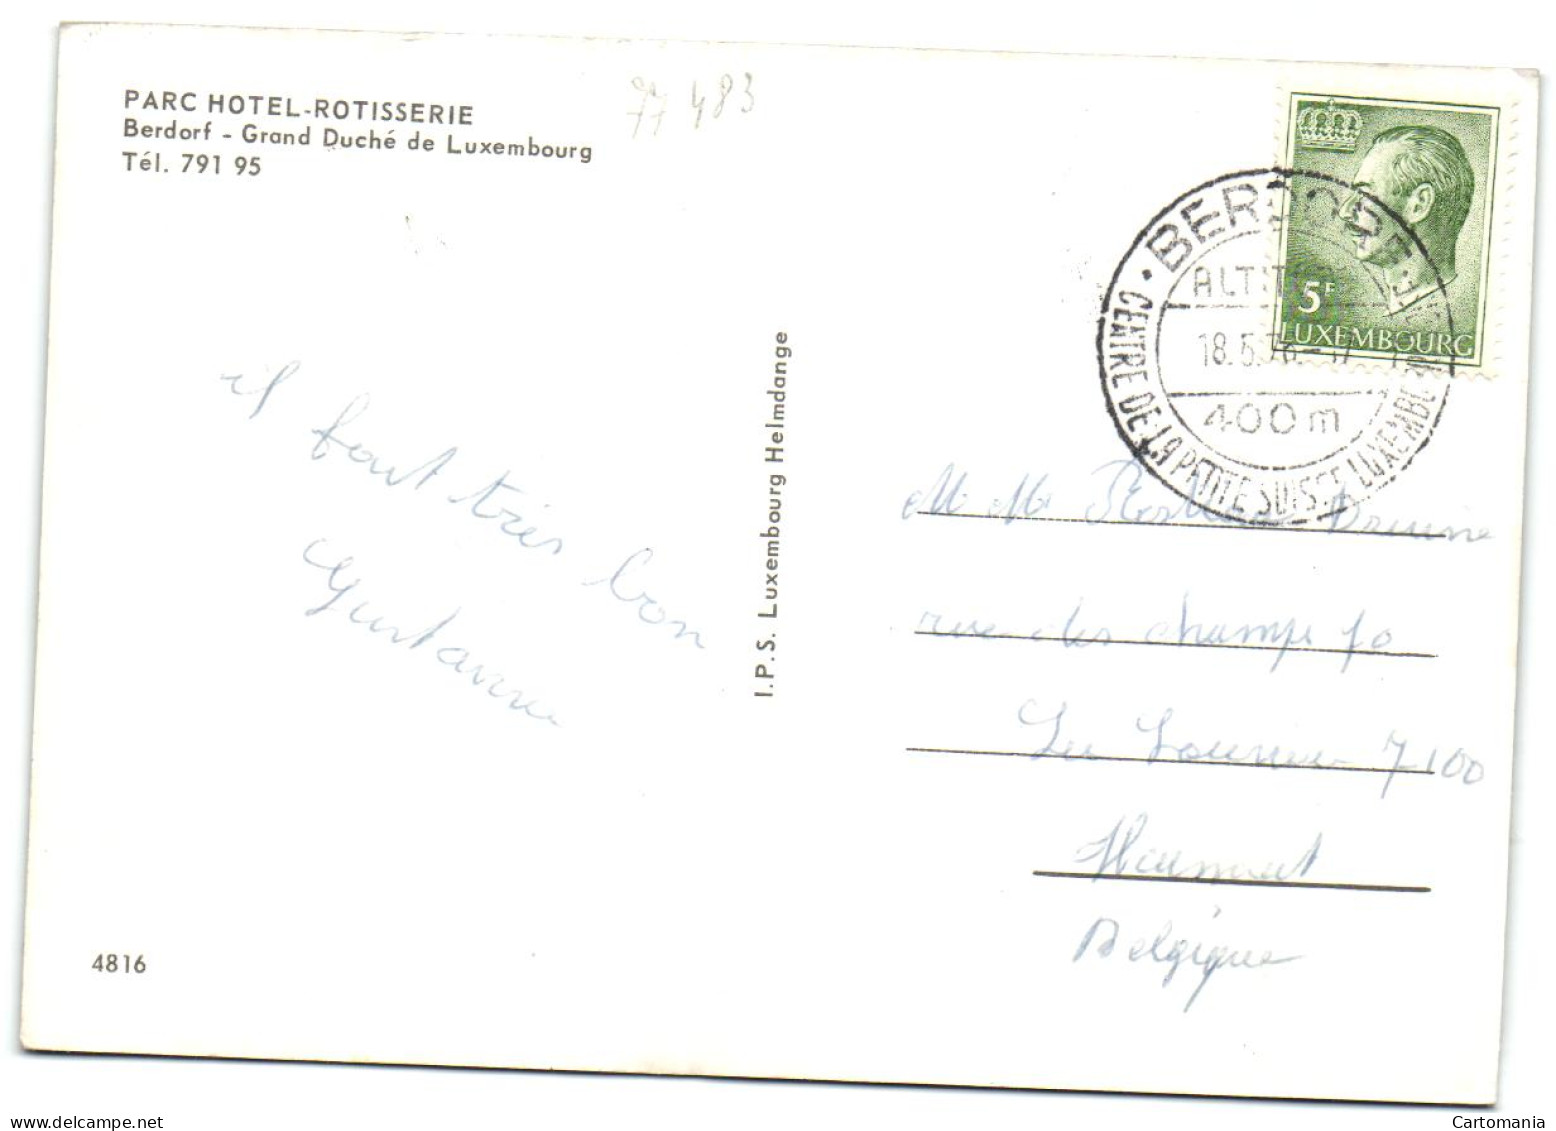 PARC HOTEL-ROTISSERIE
Berdorf - Grand Duché de Luxembourg
Tél. 791 95
77 483
LUXEMBOURG
5F
BERDORF
ALTITUDE
18.5.76
400 m
CENTRE DE LA PETITE SUISSE LUXEMBOURG
il fout très bon
I.P.S. Luxembourg Helmdange
M Mme
rue des champs 70
La 7100
Belgique
4816
delcampe.net
Cartomania